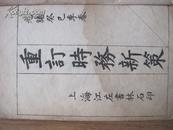 光緒癸巳年春
重訂時務新策
上海江左書林石印